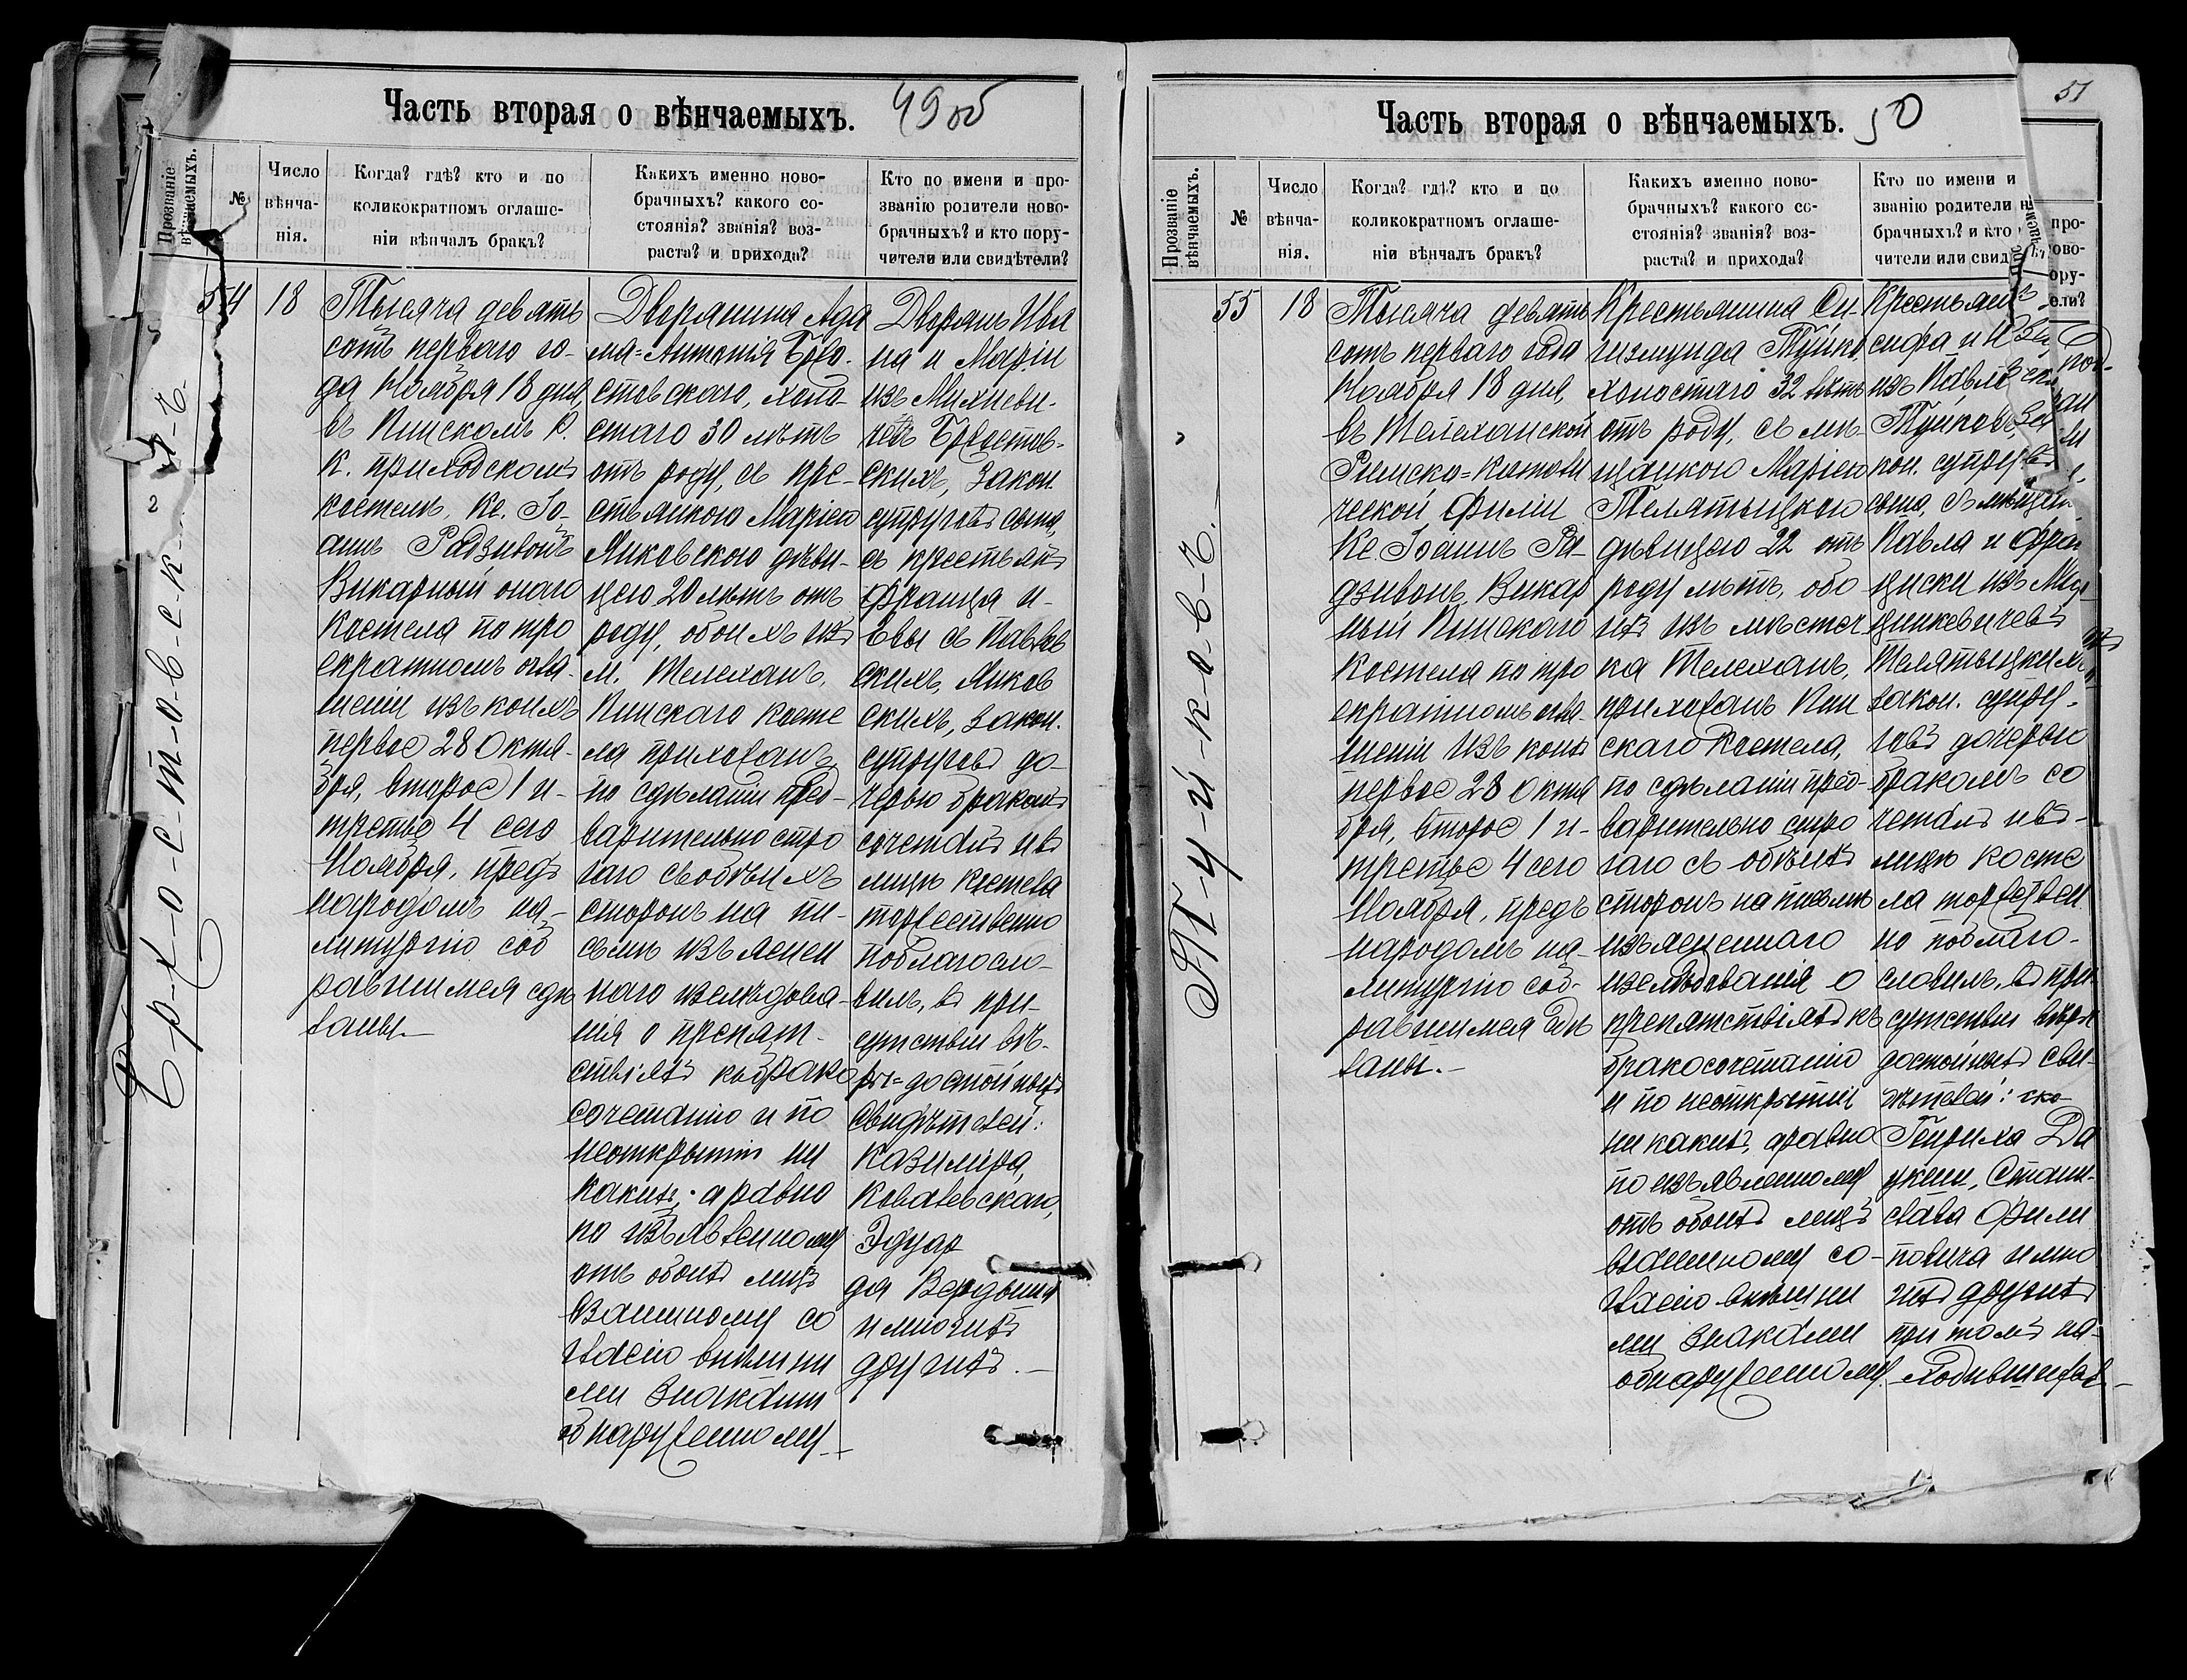 Часть вторая о вѣнчаемыхъ.
49 об
Прозваніе вѣнчаемыхъ.
№
Число вѣнча-
нія.
Когда? гдѣ? кто и по
коликократномъ оглаше-
ніи вѣнчалъ бракъ?
Какихъ именно ново-
брачныхъ? какого со-
стоянія? званія? воз-
раста? и прихода?
Кто по имени и про-
званію родители ново-
брачныхъ? и кто пору-
чители или свидѣтели?
54
18
Тысяча девять
сотъ перваго го-
да Ноября 18 дня,
въ Пинскомъ Р.
К. приходскомъ
костелѣ, Кс. Іо-
аннъ Радзивонъ
Викарный онаго
Костела по тро
екратномъ огла-
шеніи изъ коихъ
первое 28 Октя-
бря, второе 1 и-
третье 4 сего
Ноября, предъ
народомъ на-
литургію соб
равшимся сдѣ
ланы.—
Дворянина Ада
ма=Антонія Брхо-
стовскаго, холо-
стаго 30 лѣтъ
отъ роду, съ кре-
стьянкою Маріею
Янковскою дѣви-
цею 20 лѣтъ отъ
роду, обоихъ изъ
м. Телеханъ,
Пинскаго косте
ла прихожанъ,
по сдѣланіи пред-
варительно стро
гаго съ обѣихъ
сторонъ на пи-
сьмѣ изъяснен
наго изслѣдова-
нія о препят-
ствіяхъ къ брако
сочетанію и по
неоткрытіи ни
какихъ, а равно
по изъявленному
отъ обоихъ лицъ
взаимному со
гласію внѣшни
ми знаками
обнаруженному.—
Дворянъ Ива
на и Маріи
изъ Михневи-
чевъ Брхостов-
скихъ, закон.
супруговъ сына,
съ крестьянъ
Франца и-
Евы съ Павлов
скихъ, Янков
скихъ, закон.
супруговъ до-
черью бракомъ
сочеталъ и въ
лицѣ костела
торжественно
поблагосло-
вилъ, въ при-
сутствіи вѣ-
ры=достойныхъ
свидѣтелей:
Казиміра,
Ковалевскаго,
Эдуар
да
и многихъ
другихъ.—
Брхостовск
Часть вторая о вѣнчаемыхъ.
50
Прозваніе вѣнчаемыхъ.
№
Число вѣнча-
нія.
Когда? гдѣ? кто и по
коликократномъ оглаше-
ніи вѣнчалъ бракъ?
Какихъ именно ново-
брачныхъ? какого со-
стоянія? званія? воз-
раста? и прихода?
Кто по имени и
званію родители н
брачныхъ? и кто
чители или свид
55
18
Тысяча девять
сотъ перваго года
Ноября 18 дня,
въ Телеханской
Римско=Католи
ческой филіи
Кс. Іоаннъ Ра-
дзивонъ, Викар
ный Пинскаго
Костела по тро
екратномъ огла-
шеніи изъ коихъ
первое 28 Октя
бря, второе 1 и-
третье 4 сего
Ноября, предъ
народомъ на-
литургію соб-
равшимся сдѣ
ланы.—
Крестьянина Си-
гизмунда Туйко
холостаго 32 лѣтъ
отъ роду, съ мѣ-
щанкою Маріею
Телятыцкою
дѣвицею 22 отъ
роду лѣтъ, обо
ихъ изъ местеч
ка Телеханъ,
прихожанъ Пин
скаго Костела,
по сдѣланіи пред-
варительно стро
гаго съ обѣихъ
сторонъ на письмѣ
изъясненнаго
изслѣдованія о
препятствіяхъ къ
бракосочетанію
и по неоткрытіи
никакихъ, а равно
по изъявленному
отъ обоихъ лицъ
взаимному со-
гласію внѣшни
ми знаками
обнаруженному.
Крестьянъ
сифа и
изъ
Туйковъ,
кон. супруговъ
сына, съ мѣщан
Павла и Фран
циски изъ
цинкевичевъ
Телятыцкихъ
закон. супру-
говъ дочерью
бракомъ со
четалъ и въ-
лицѣ косте
ла торжествен
но поблаго-
словилъ, въ при-
сутствіи вѣры
достойныхъ сви-
дѣтелей:
Генриха
Стани-
слава Фили
повича и мно
гихъ другихъ
при томъ на-
ходившихся.—
Туйкович.—
51
про-
ово-
ору-
ели?